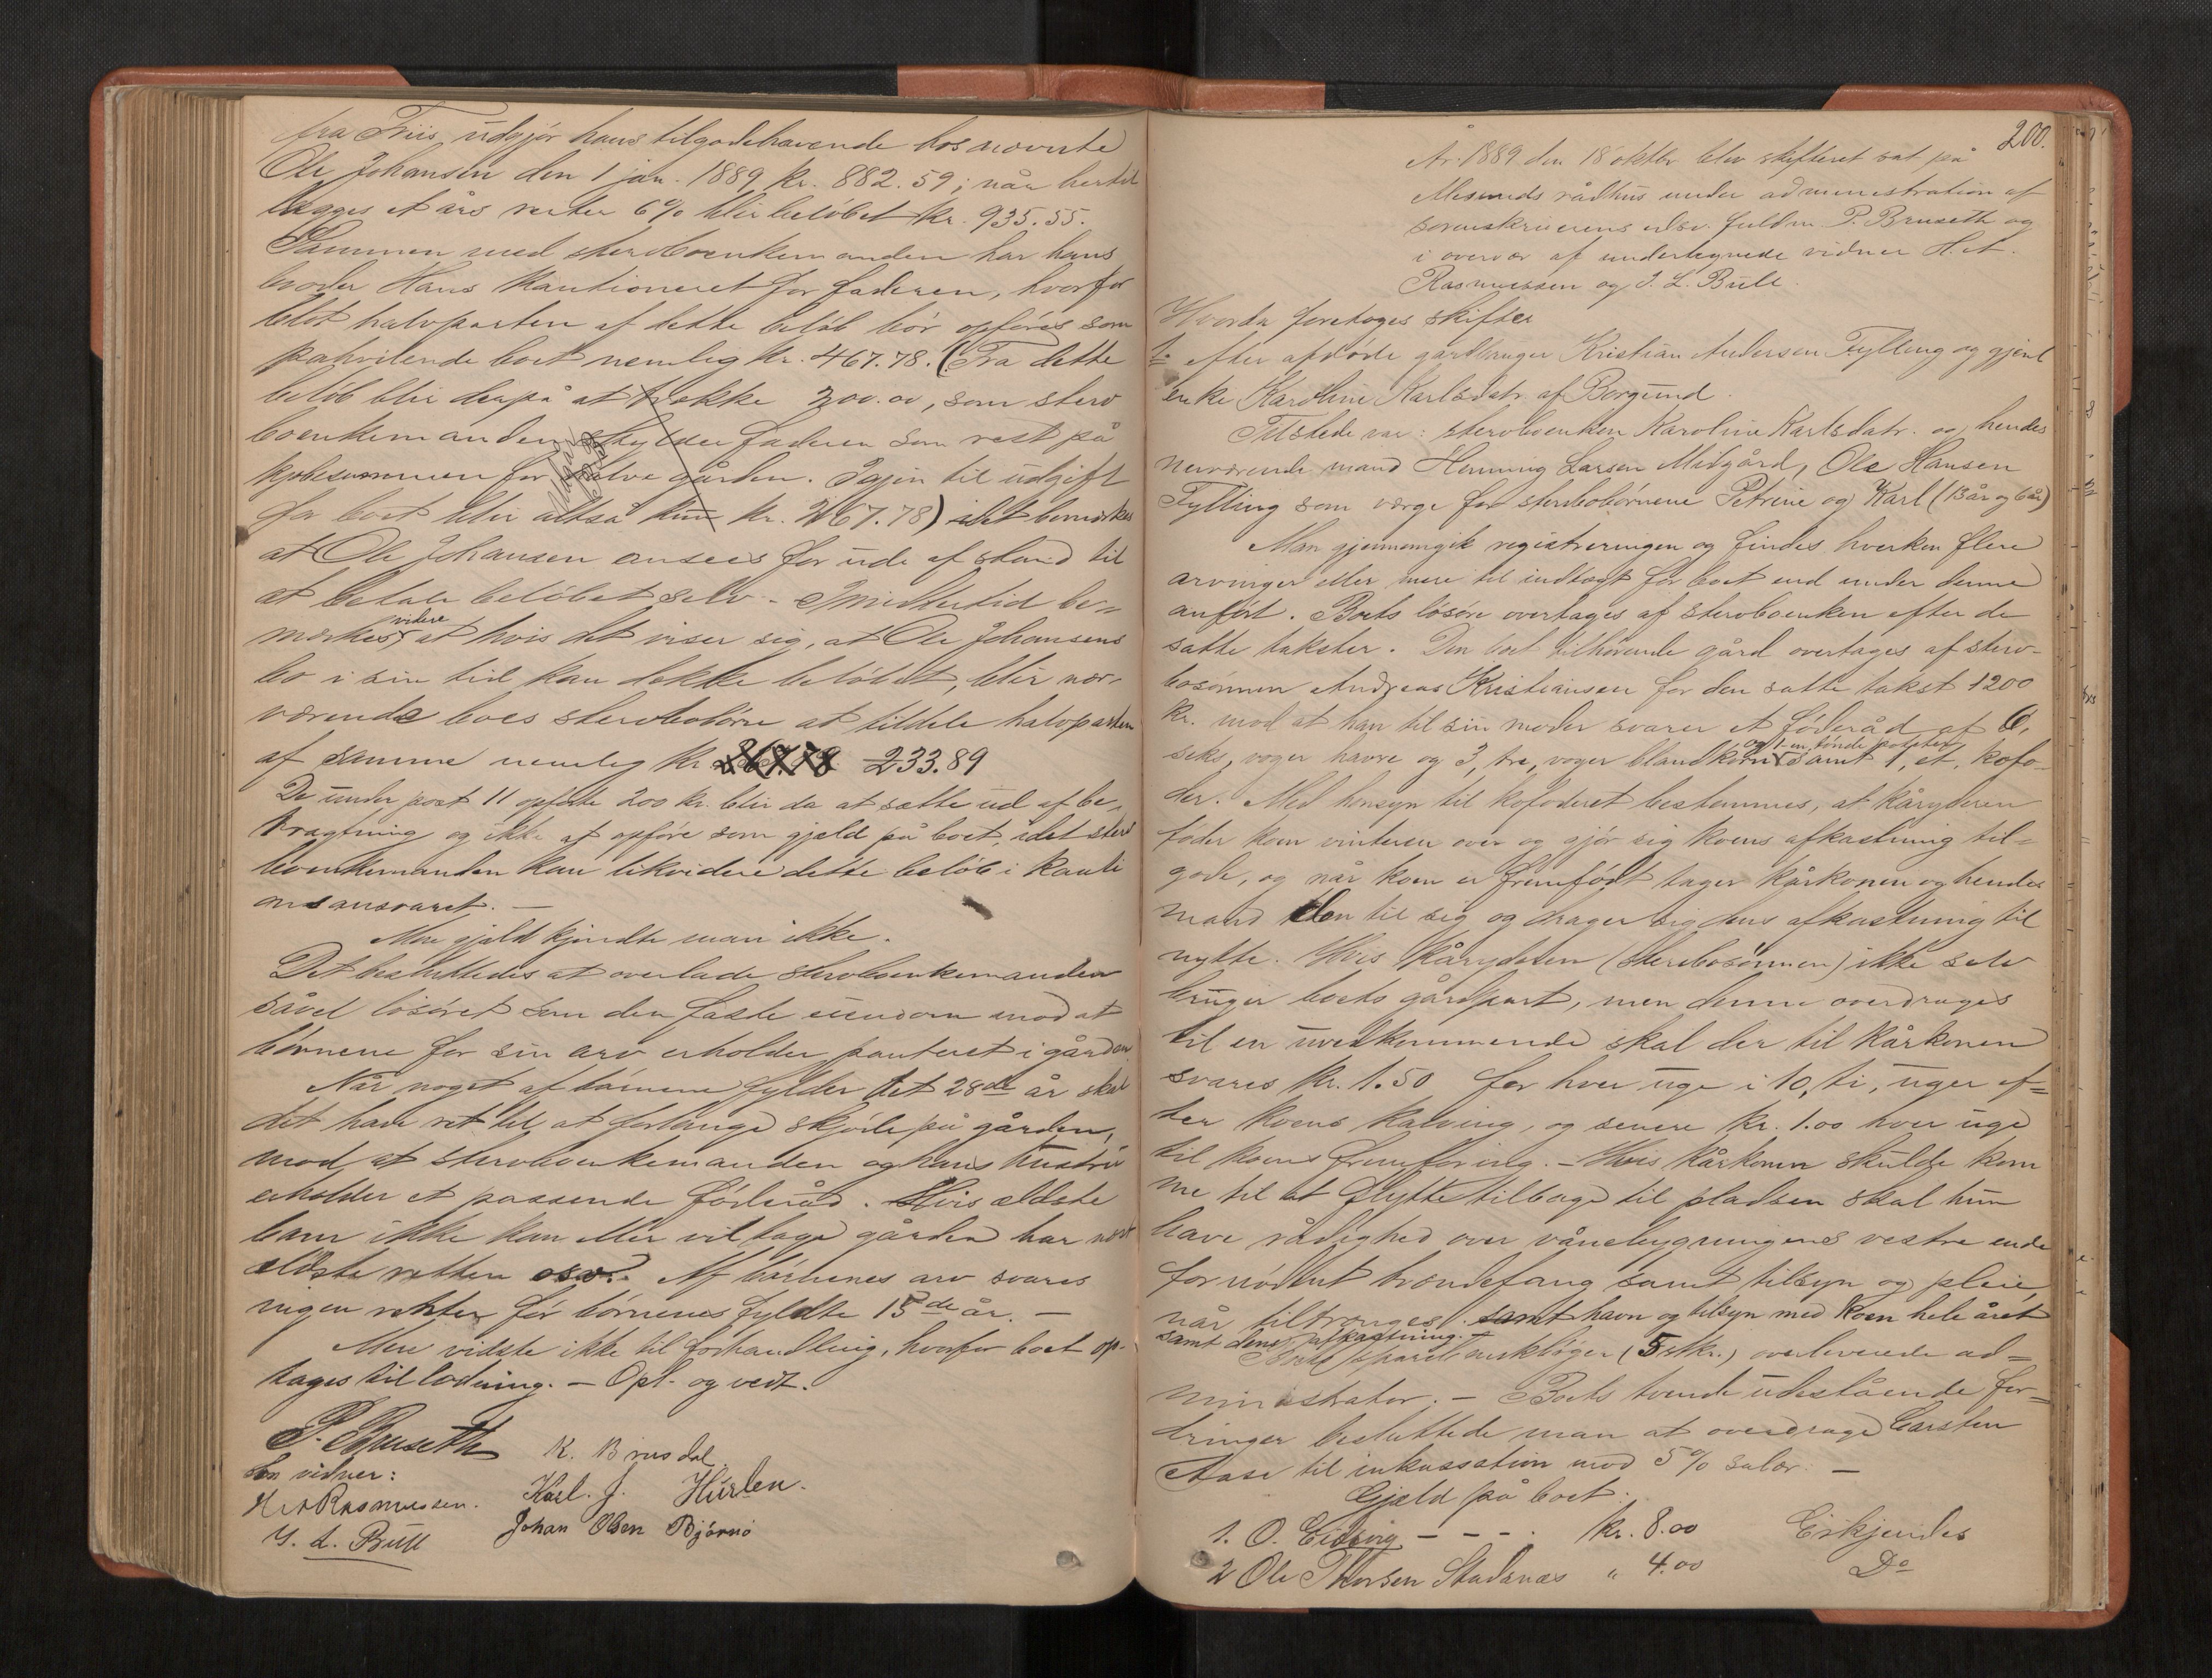 fra Friis, udgjør hans tilgodehavende hos nævnte
Ole Johansen den 1 jan. 1889 kr. 882.59; når hertil
lægges et års renter 6% blir beløbet kr. 935.55.
Sammen med stervboenkemanden har hans
broder Hans kautioneret for faderen, hvorfor
blot halvparten af dette beløb bør opføres som
påhvilende boet nemlig kr. 467.78. (Fra dette
beløb blir derpå at trække 200.00, som sterv
boenkemanden skylder faderen som rest på
kjøbesummen for halve gården. Igjen til udgift
for boet blir altså kun kr. 267.78) idet bemerkes
at Ole Johansen ansees for ude af stand til
at betale beløbet selv. Imidlertid be-
mærkes videre at hvis det viser sig, at Ole Johansens
bo i sin tid kan dække beløbet, blir nær-
værende boes stervbobørn at tildele halvparten
af samme nemlig kr 267.78 233.89
De under post 11 opførte 200 kr. blir da at sætte ud af be-
tragtning og ikke at opføre som gjæld på boet, idet sterv
boenkemanden kan likvidere dette beløb i kauti
onsansvaret. —
Mere gjæld kjendte man ikke.
Det besluttedes at overlade stervboenkemanden
såvel løsøret som den faste eiendom mod at
børnene for sin arv erholder panteret i gården.
Når noget af børnene fylder det 28de år skal
det have ret til at forlange skjøde på gården,
mod at stervboenkemanden og hans hustru
erholder et passende føderåd. Hvis ældste
barn ikke kan eller vil tage gården har næst
ældste retten osv. Af børnenes arv svares
ingen renter før børnenes fyldte 15de år. —
Mere vidste ikke til forhandling, hvorfor boet op-
tages til lodning. — Opl. og vedt.
P. Bruseth K. Brusdal
Som vidner: Karl. J. Hurlen.
H. A Rasmussen. Johan Olsen Bjørnø
J. L. Bull
200.
År 1889 den 18 oktbr. blev skifteret sat på
Ålesunds rådhus under administration af
sorenskriverens edsv. fuldm P. Bruseth og
i overvær af undertegnede vidner H. A.
Rasmussen og J. L. Bull.
Hvorda foretoges skifte
1. efter afdøde gårdbruger Kristian Andersen Fylling og gjenl
enke Karoline Karlsdatr. af Borgund.
Tilstede var: stervboenken Karoline Karlsdatr. og hendes
nuværende mand Henning Larsen Midgård, Ole Hansen
Fylling som værge for stervbobørnene Petrine og Karl (13 år og 6 år)
Man gjennemgik registreringen og findes hverken flere
arvinger eller mere til indtægt for boet end under denne
anført. Boets løsøre overtages af stervboenken efter de
satte takster. Den boet tilhørende gård overtages af sterv-
bosønnen Andreas Kristiansen for den satte takst 1200
kr. mod at han til sin moder svarer et føderåd af 6,
og 1 - en, tønde poteter
seks, voger havre og 3, tre, voger blandkorn samt 1, et, kofo-
der. Med hensyn til kofoderet bestemmes, at kåryderen
føder koen vinteren over og gjør sig koens afkastning til-
gode, og når koen er fremfødt tager kårkonen og hendes
mand den til sig og drager sig dens afkastning til
nytte. Hvis kåryderen (stervbosønnen) ikke selv
bruger boets gårdpart, men denne overdrages
til en uvedkommende skal der til kårkonen
svares kr. 1.50 for hver uge i 10, ti, uger ef-
ter koens kalving, og senere kr. 1.00 hver uge
til koens fremføring. — Hvis kårkonen skulde kom
me til at flytte tilbage til pladsen skal hun
have rådighed over våningbygningens vestre ende
fornødent brændefang samt tilsyn og pleie
når tiltrænges. samt havn og tilsyn med koen hele året
samt dens afkastning. —
Boets sparebankbøger (5 stkr.) overleverede ad-
ministrator. — Boets tvende udestående for-
dringer besluttede man at overdrage Carsten
Aase til inkassation mod 5% salær. —
Gjæld på boet:
1. O. Eidsvig — — — . kr. 8.00 Erkjendes
2 Ole Thorsen Stadsnæs " 4.00 Do